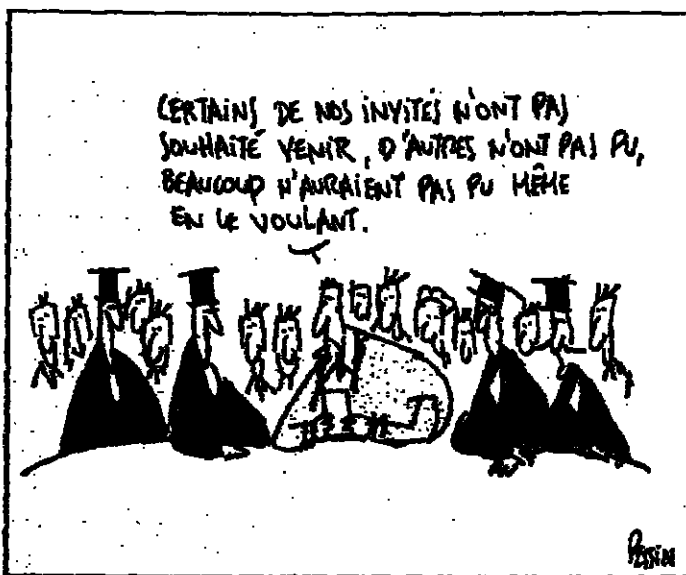 CERTAINS DE NOS INVITÉS N'ONT PAS
SOUHAITÉ VENIR, D'AUTRES N'ONT PAS PU,
BEAUCOUP N'AURAIENT PAS PU MÊME
EN LE VOULANT.
PESSIN